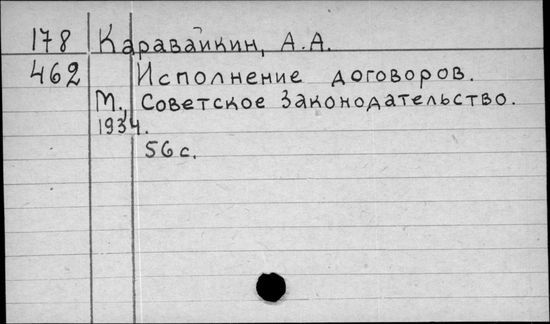 178 Каравайкин, А.А.
462 Исполнение договоров.
М., Советское Законодательство.
1934.
56 с.